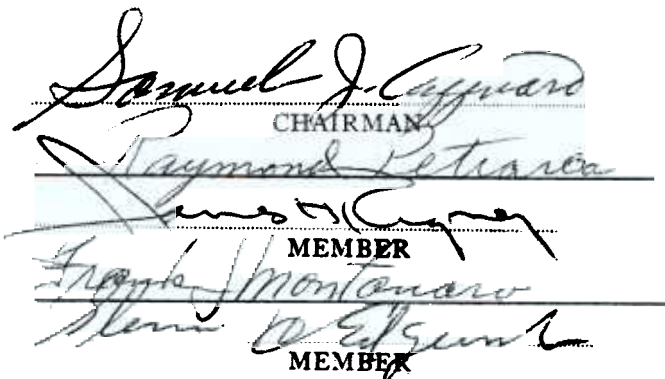 Samuel J.
CHAIRMAN
Raymond Petrarca
James
MEMBER
Frank J Montanaro
MEMBER